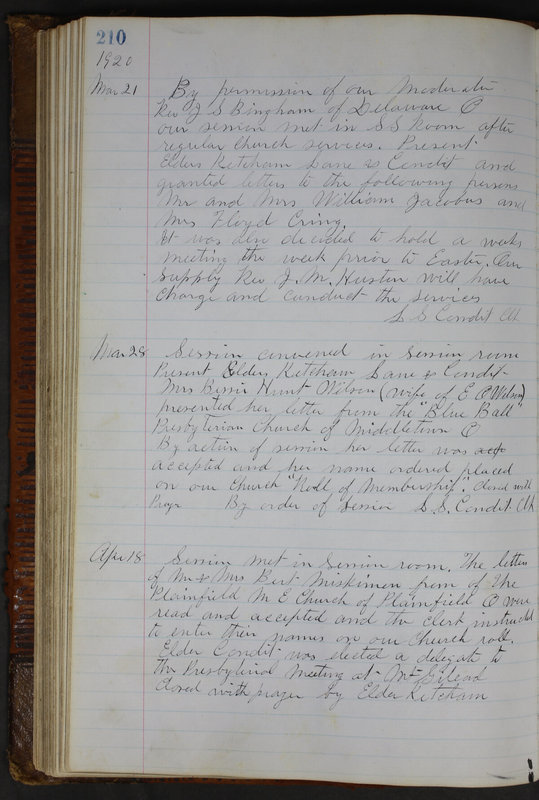 210
1920
Mar 21 By permission of our Moderator
Rev J S Bingham of Delaware O
our session met in S S Room after
regular Church services. Present
Elders Ketcham Lane & Condit and
granted letters to the following persons
Mr and Mrs William Jacobus and
Mrs Floyd Cring.
It was also decided to hold a weeks
meeting the week prior to Easter. Our
supply Rev J. M. Huston will have
charge and conduct the services
L S Condit Clk
Mar 28 Session convened in session room
Present Elders Ketcham Lane & Condit
Mrs Bessie Hunt Wilson (wife of E O Wilson)
presented her letter from the "Blue Ball"
Presbyterian Church of Middletown O
By action of session her letter was acp
accepted and her name ordered placed
on our Church "Roll of Membership". Closed with
Prayr By order of session L. S. Condit Clk
Apr 18 Session met in Session room, The letters
of Mr & Mrs Bert Miskimen from of the
Plainfield M E Church of Plainfield O were
read and accepted and the Clerk instructed
to enter their names on our Church roll.
Elder Condit was elected a delegate to
the Presbyterial Meeting at Mt Gilead
Closed with prayer by Elder Ketcham